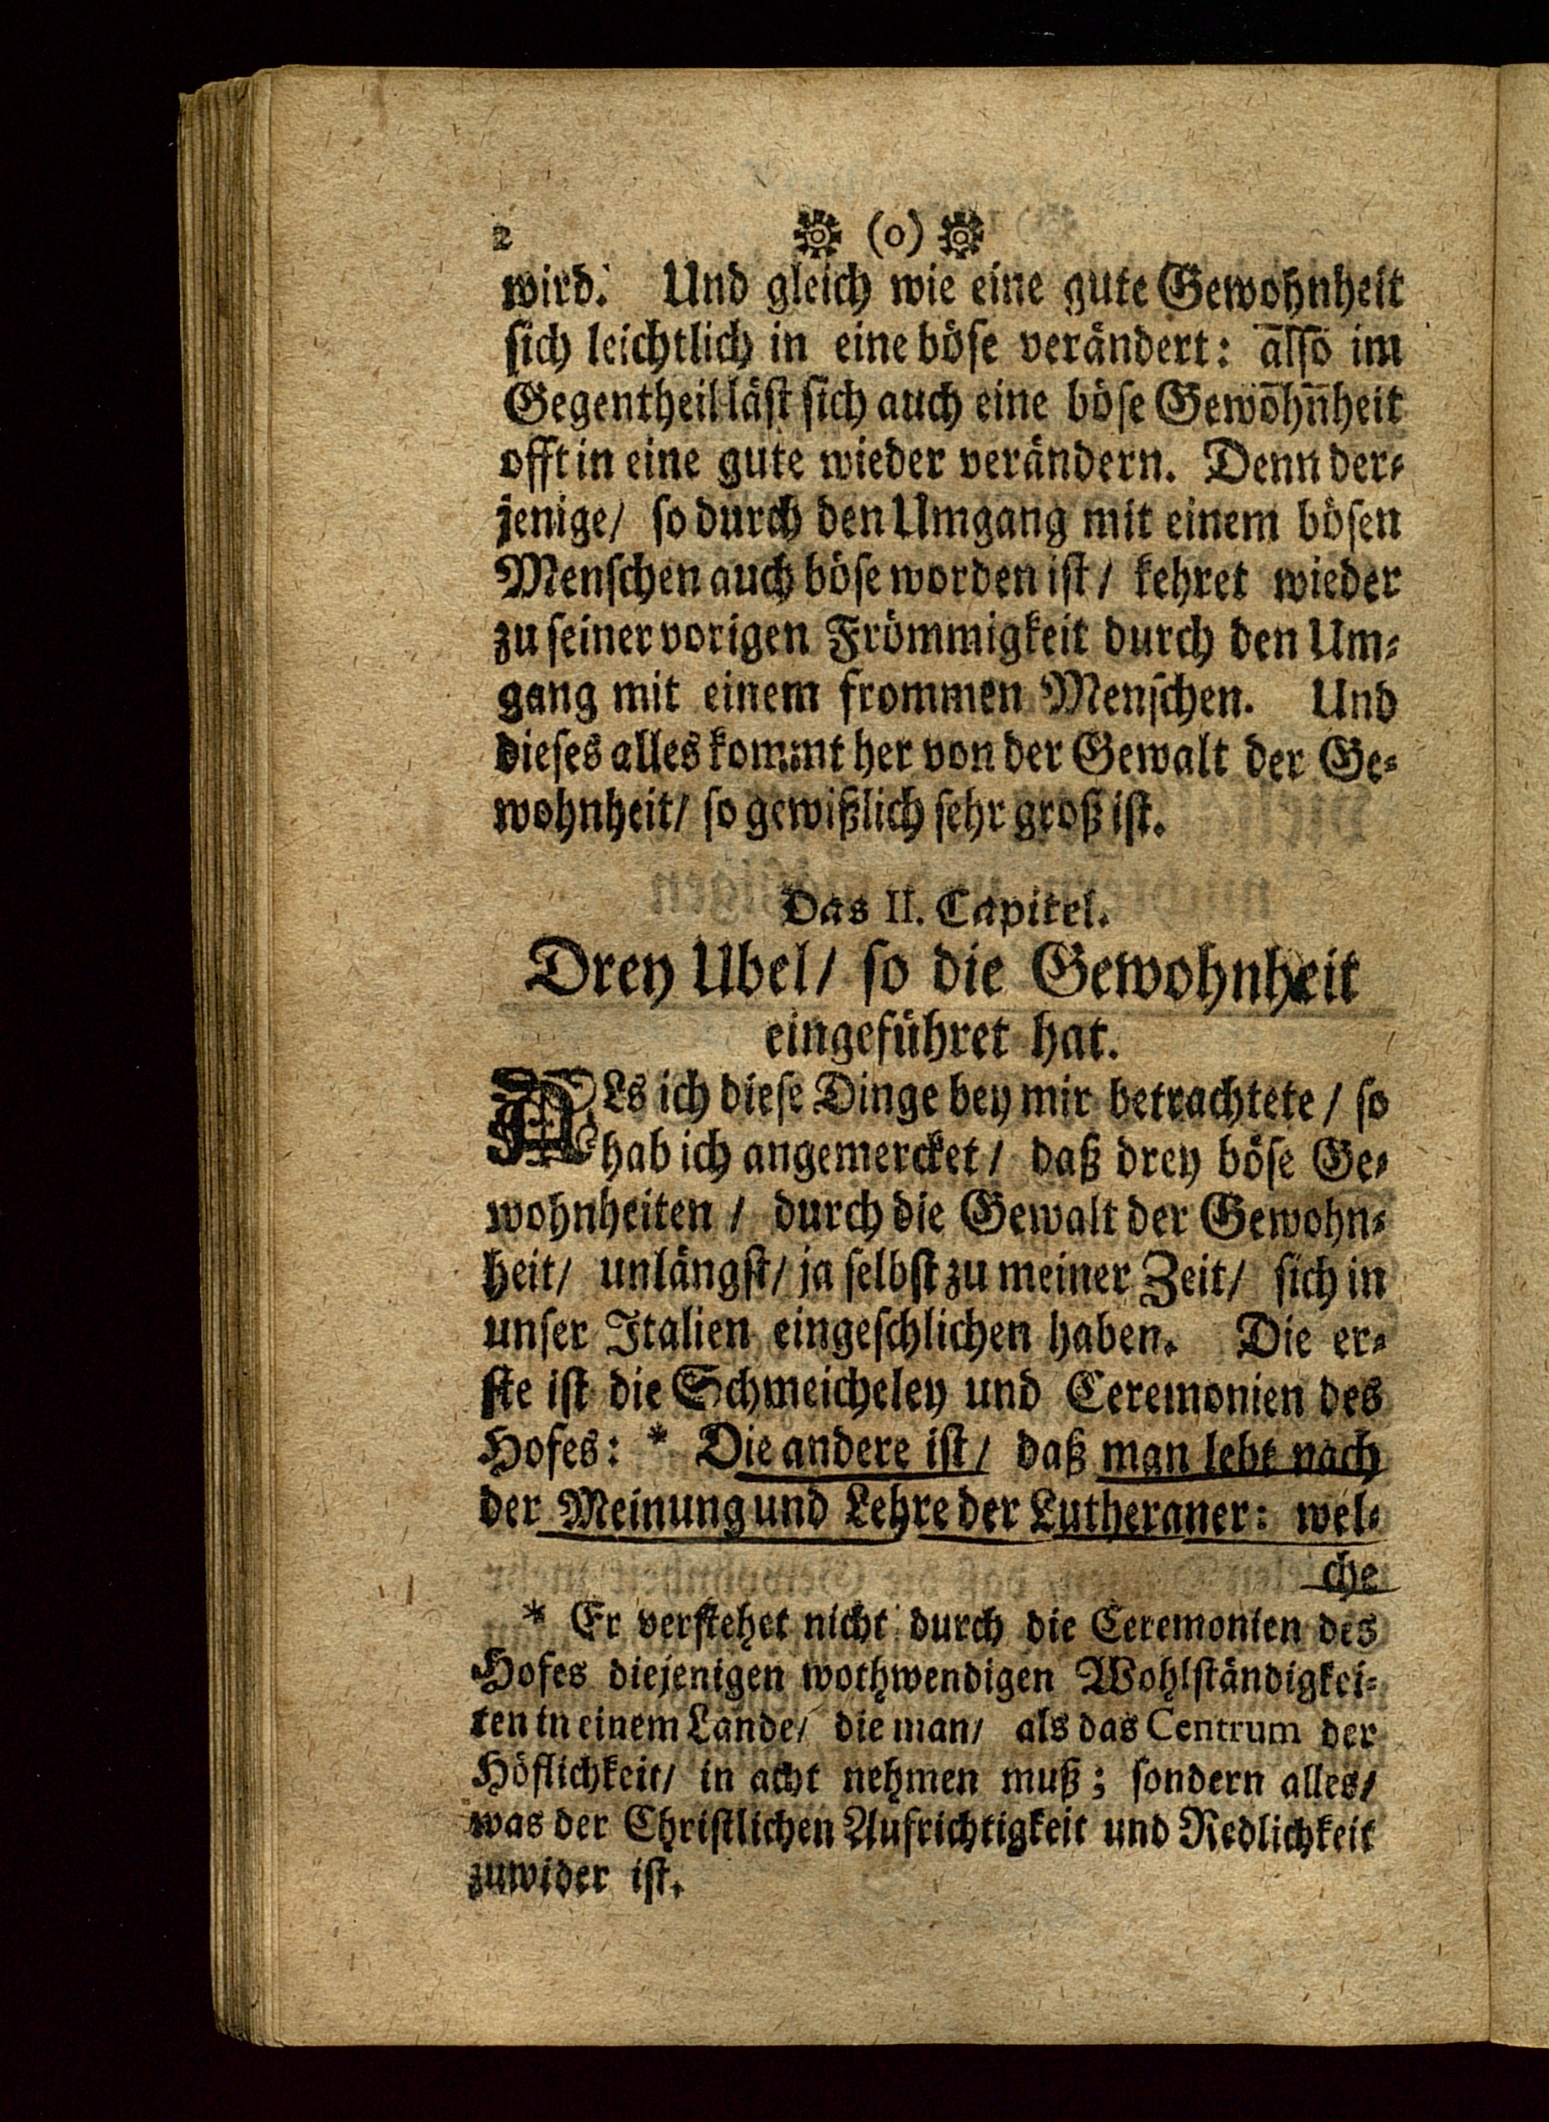 2 (o)
wird. Und gleich wie eine gute Gewohnheit
sich leichtlich in eine böse verändert: also im
Gegentheil läst sich auch eine böse Gewohnheit
offt in eine gute wieder verändern. Denn der-
jenige/ so durch den Umgang mit einem bösen
Menschen auch böse worden ist/ kehret wieder
zu seiner vorigen Frömmigkeit durch den Um-
gang mit einem frommen Menschen. Und
dieses alles kommt her von der Gewalt der Ge-
wohnheit/ so gewißlich sehr groß ist.
Das II. Capitel.
Drey Ubel/ so die Gewohnheit
eingeführet hat.
ALs ich diese Dinge bey mir betrachtete/ so
hab ich angemercket/ daß drey böse Ge-
wohnheiten/ durch die Gewalt der Gewohn-
heit/ unlängst/ ja selbst zu meiner Zeit/ sich in
unser Italien eingeschlichen haben. Die er-
ste ist die Schmeicheley und Ceremonien des
Hofes: * Die andere ist/ daß man lebt nach
der Meinung und Lehre der Lutheraner: wel-
che
* Er verstehet nicht durch die Ceremonien des
Hofes diejenigen wothwendigen Wohlständigkei-
ten in einem Lande/ die man/ als das Centrum der
Höflichkeit/ in acht nehmen muß; sondern alles/
was der Christlichen Aufrichtigkeit und Redlichkeit
zuwider ist.